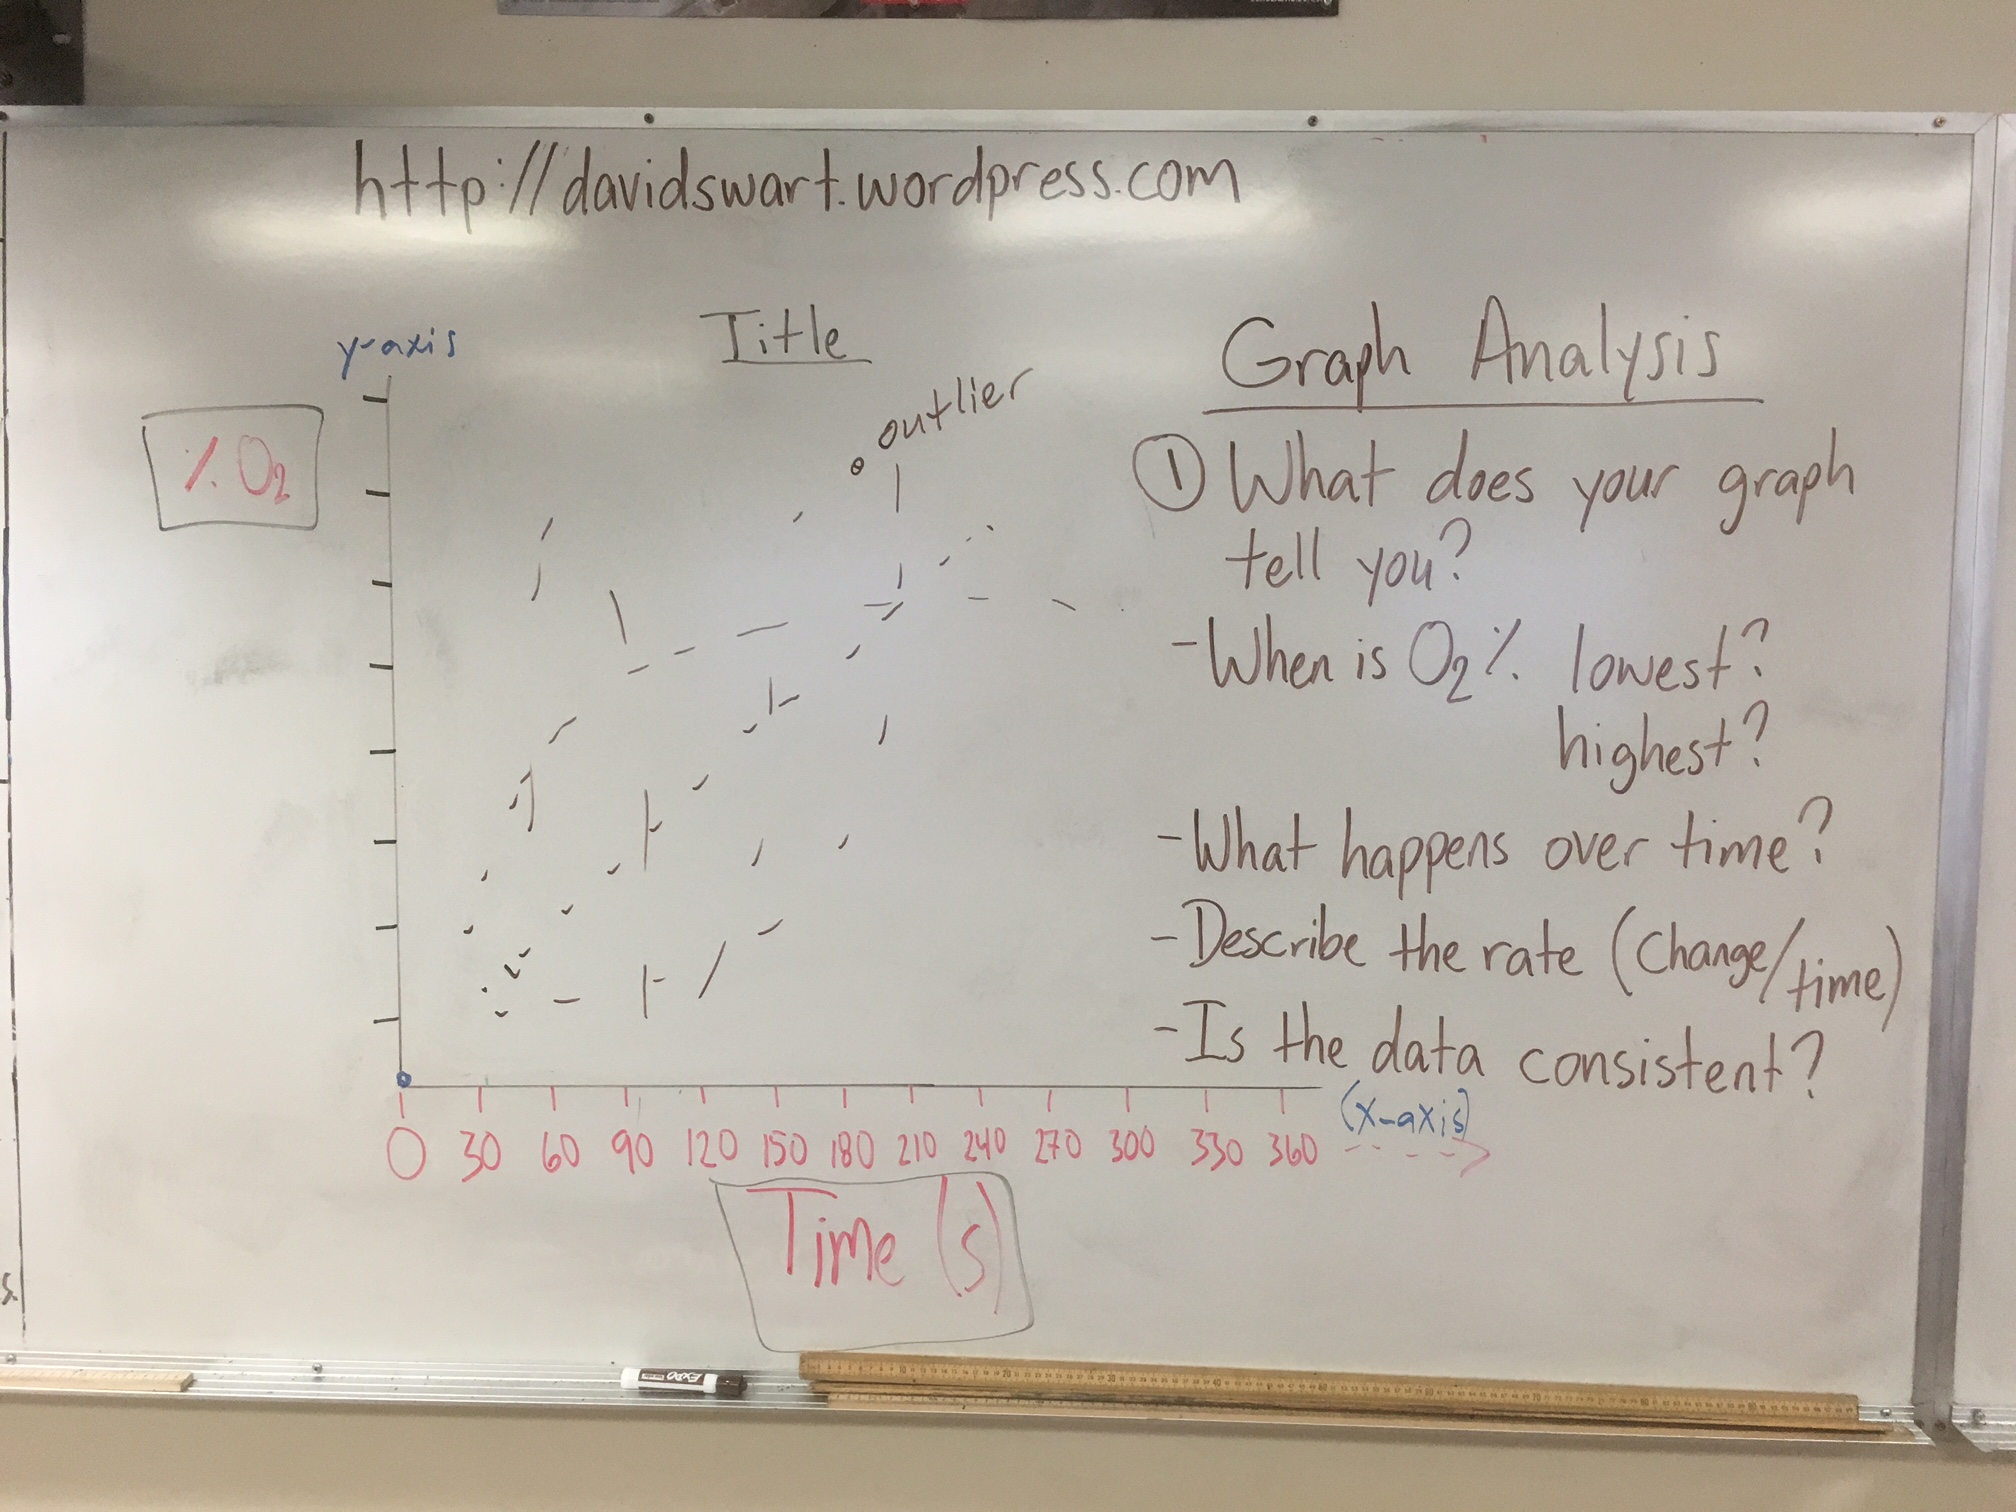 http://davidswart.wordpress.com
Title
y-axis
% O2
outlier
Graph Analysis
① What does your graph
tell you?
- When is O2 % lowest?
highest?
- What happens over time?
- Describe the rate (change/time)
- Is the data consistent?
(x-axis)
0 30 60 90 120 150 180 210 240 270 300 330 360
Time (s)
EXPO
s.